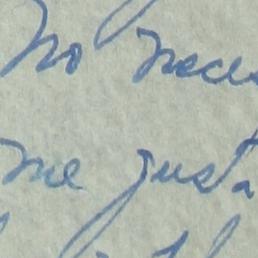 No nece
me gusta